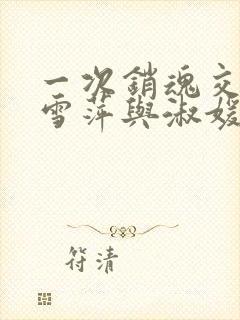 一次銷魂交
雪萍與淑媛
符清